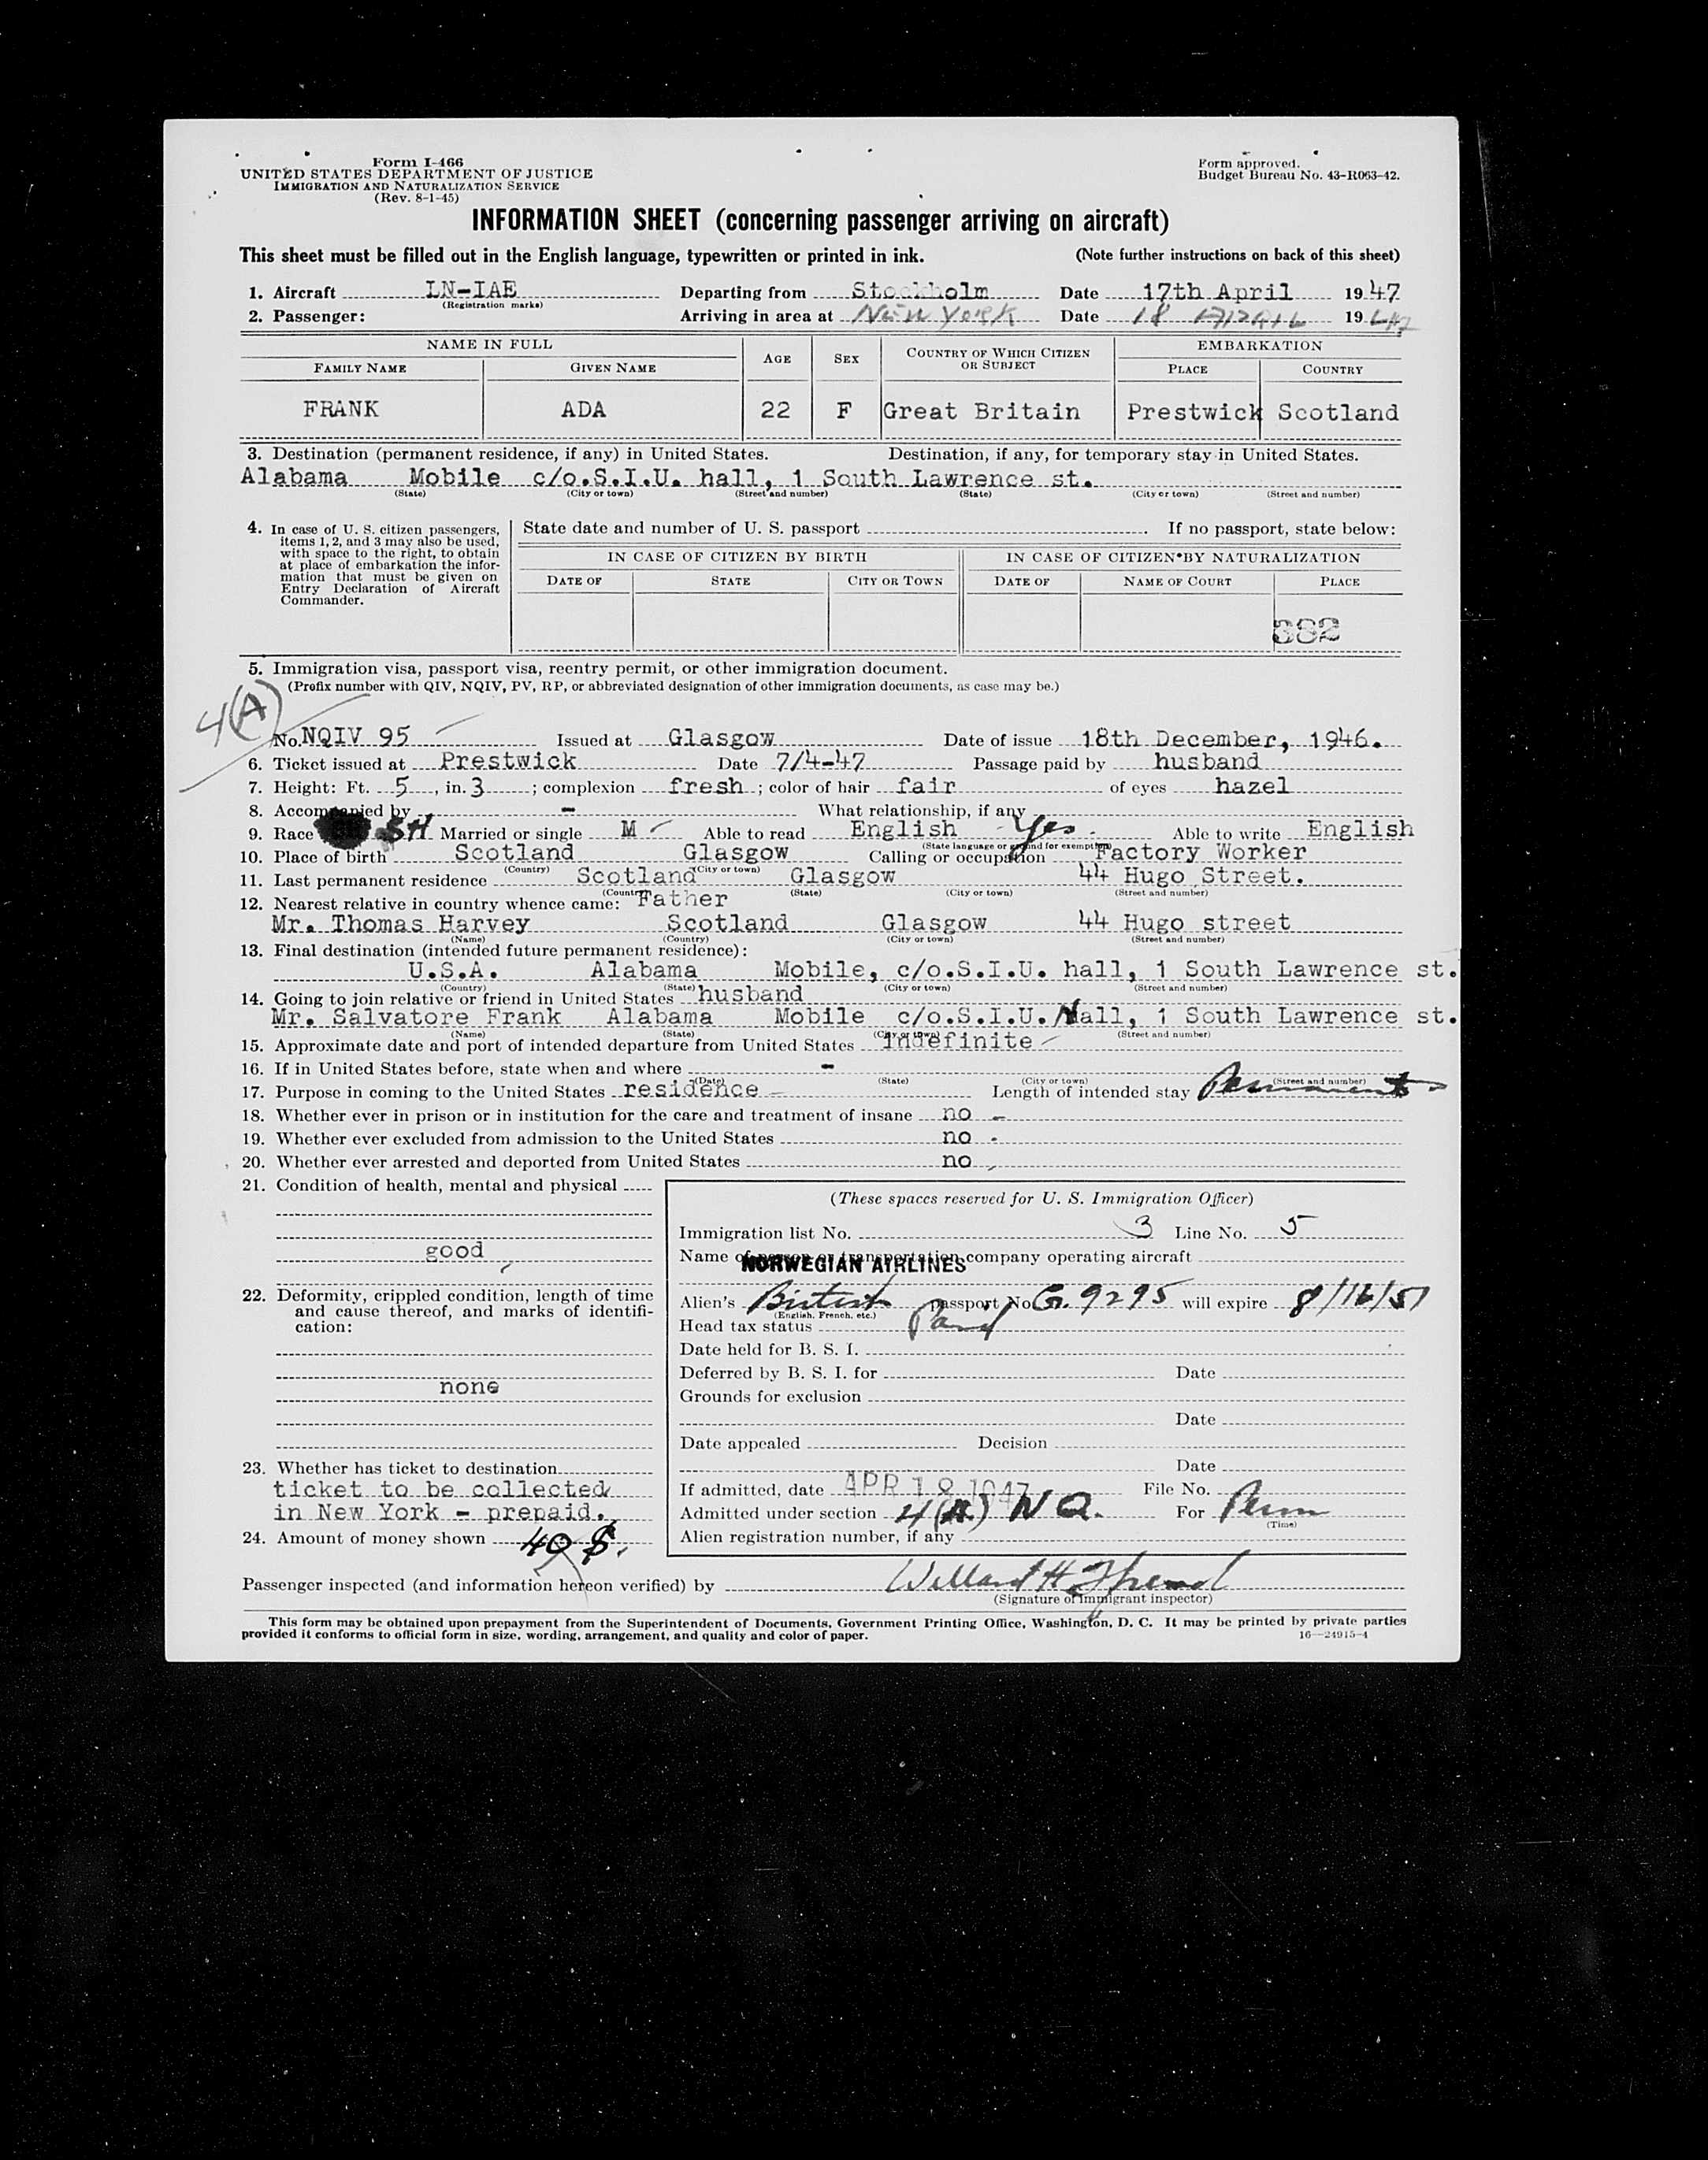 Form I-466
UNITED STATES DEPARTMENT OF JUSTICE
IMMIGRATION AND NATURALIZATION SERVICE
(Rev. 8-1-45)
Form approved.
Budget Bureau No. 43-R063-42.
INFORMATION SHEET (concerning passenger arriving on aircraft)
This sheet must be filled out in the English language, typewritten or printed in ink. (Note further instructions on back of this sheet)
1. Aircraft LN-IAE Departing from Stockholm Date 17th April 1947
(Registration marks)
2. Passenger: Arriving in area at New York Date 18 APRIL 1947
NAME IN FULL AGE SEX COUNTRY OF WHICH CITIZEN OR SUBJECT EMBARKATION
FAMILY NAME GIVEN NAME PLACE COUNTRY
FRANK ADA 22 F Great Britain Prestwick Scotland
3. Destination (permanent residence, if any) in United States. Destination, if any, for temporary stay in United States.
Alabama Mobile c/o.S.I.U. hall, 1 South Lawrence st.
(State) (City or town) (Street and number) (State) (City or town) (Street and number)
4. In case of U. S. citizen passengers, items 1, 2, and 3 may also be used, with space to the right, to obtain at place of embarkation the information that must be given on Entry Declaration of Aircraft Commander.
State date and number of U. S. passport . If no passport, state below:
IN CASE OF CITIZEN BY BIRTH IN CASE OF CITIZEN BY NATURALIZATION
DATE OF STATE CITY OR TOWN DATE OF NAME OF COURT PLACE
382
5. Immigration visa, passport visa, reentry permit, or other immigration document.
(Prefix number with QIV, NQIV, PV, RP, or abbreviated designation of other immigration documents, as case may be.)
4(A)
No. NQIV 95 Issued at Glasgow Date of issue 18th December, 1946.
6. Ticket issued at Prestwick Date 7/4-47 Passage paid by husband
7. Height: Ft. 5, in. 3; complexion fresh; color of hair fair of eyes hazel
8. Accompanied by - What relationship, if any
9. Race SH Married or single M Able to read English Yes. Able to write English
(State language or ground for exemption)
10. Place of birth Scotland Glasgow Calling or occupation Factory Worker
(Country) (City or town)
11. Last permanent residence Scotland Glasgow 44 Hugo Street.
(Country) (State) (City or town) (Street and number)
12. Nearest relative in country whence came: Father
Mr. Thomas Harvey Scotland Glasgow 44 Hugo street
(Name) (Country) (City or town) (Street and number)
13. Final destination (intended future permanent residence):
U.S.A. Alabama Mobile, c/o.S.I.U. hall, 1 South Lawrence st.
(Country) (State) (City or town) (Street and number)
14. Going to join relative or friend in United States husband
Mr. Salvatore Frank Alabama Mobile c/o.S.I.U. Hall, 1 South Lawrence st.
(Name) (State) (City or town) (Street and number)
15. Approximate date and port of intended departure from United States indefinite
16. If in United States before, state when and where -
(Date) (State) (City or town) (Street and number)
17. Purpose in coming to the United States residence Length of intended stay Permanent
18. Whether ever in prison or in institution for the care and treatment of insane no
19. Whether ever excluded from admission to the United States no
20. Whether ever arrested and deported from United States no
21. Condition of health, mental and physical
good
22. Deformity, crippled condition, length of time and cause thereof, and marks of identification:
none
23. Whether has ticket to destination
ticket to be collected
in New York - prepaid.
24. Amount of money shown 40 $.
(These spaces reserved for U. S. Immigration Officer)
Immigration list No. 3 Line No. 5
Name of person or transportation company operating aircraft
NORWEGIAN AIRLINES
Alien's British passport No. G. 9295 will expire 8/16/51
(English, French, etc.)
Head tax status Paid
Date held for B. S. I.
Deferred by B. S. I. for Date
Grounds for exclusion
Date
Date appealed Decision
Date
If admitted, date APR 18 1947 File No.
Admitted under section 4(A) NQ. For Perm
(Time)
Alien registration number, if any
Passenger inspected (and information hereon verified) by Willard H.
(Signature of immigrant inspector)
This form may be obtained upon prepayment from the Superintendent of Documents, Government Printing Office, Washington, D. C. It may be printed by private parties
provided it conforms to official form in size, wording, arrangement, and quality and color of paper. 16—24915-4